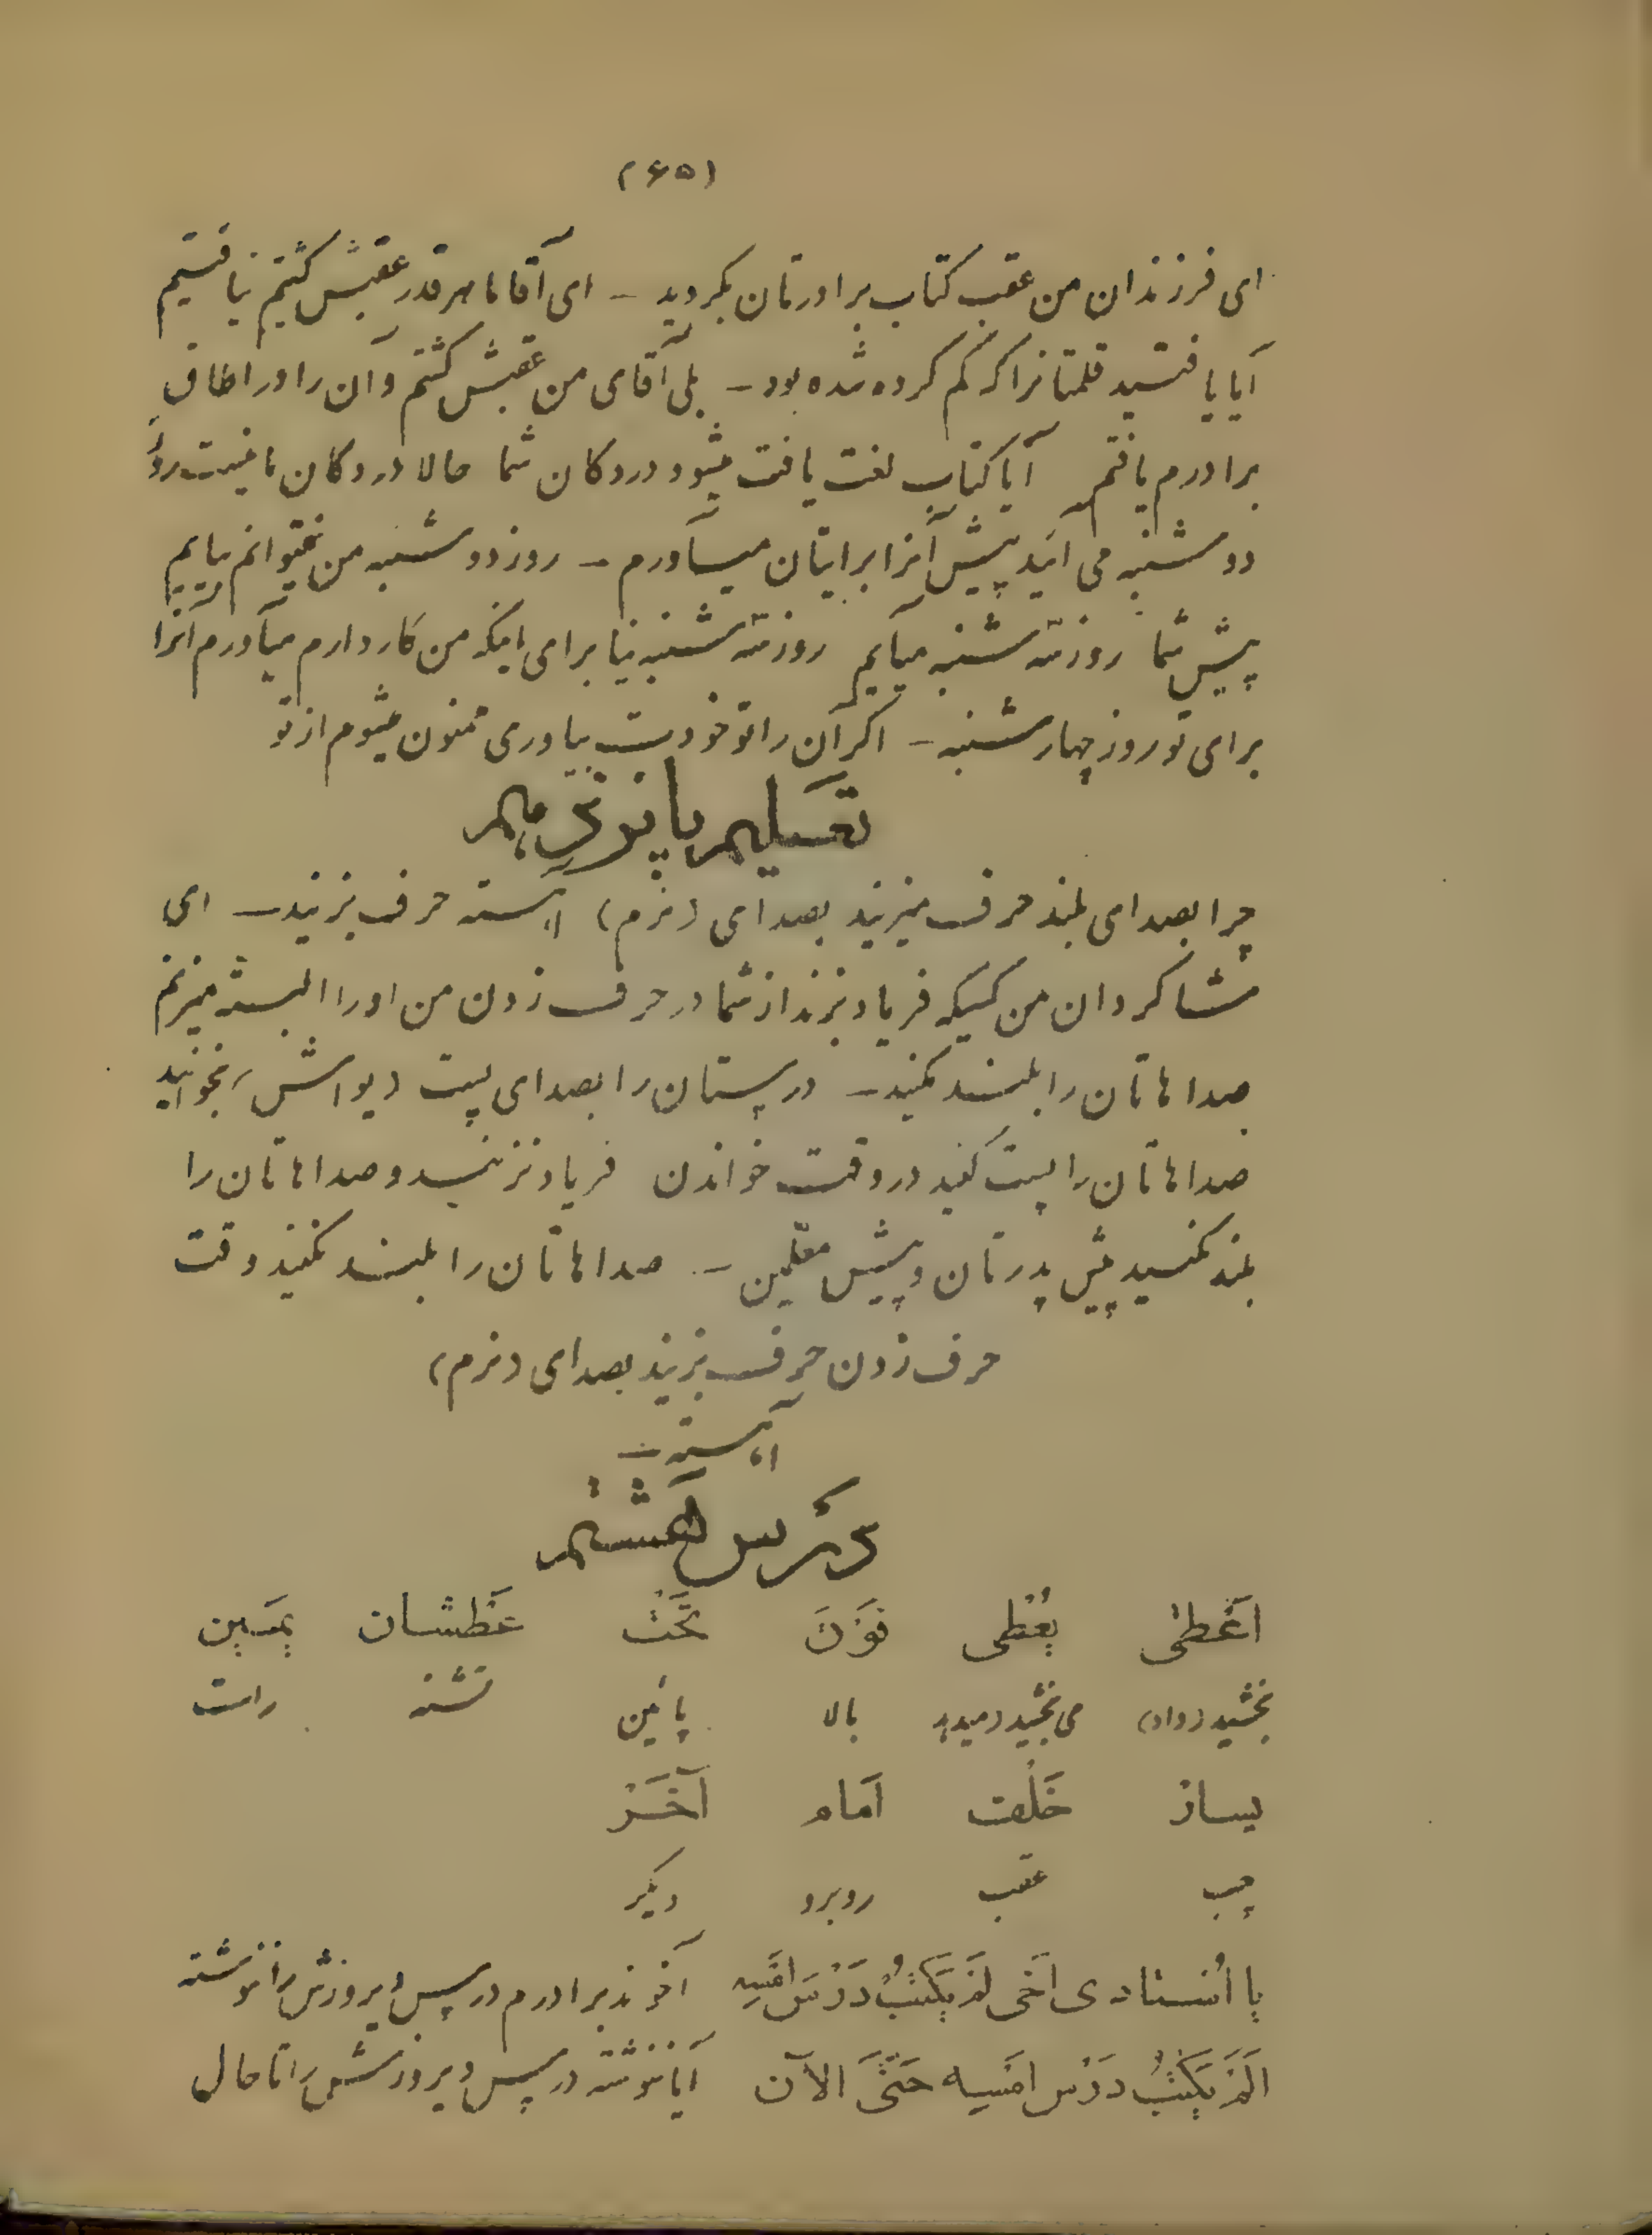 (۶۵)
ای فرزندان من عقب کتاب برادرتان بگردید – ای آقا ما هر قدر عقبش گشتیم نیافتیم
آیا یافتید قلمتانرا که گم کرده شده بود – بلی آقای من عقبش گشتم و آن را در اطاق
برادرم یافتم آیا کتاب لغت یافت میشود در دکان شما حالا در دکان ما نیست روز
دوشنبه می آئید پیش آنرا برایتان میآورم – روز دوشنبه من نمیتوانم بیایم
پیش شما روز سه شنبه میآیم روز سه شنبه نیا برای اینکه من کار دارم میآورم آنرا
برای تو روز چهارشنبه – اگر آن را تو خودت بیاوری ممنون میشوم از تو
تعلیم پانزدهم
چرا بصدای بلند حرف میزنید بصدای (نرم) آهسته حرف بزنید – ای
شاگردان من کسیکه فریاد بزند از شما در حرف زدن من او را البته میزنم
صداهاتان را بلند نکنید – درستان را بصدای پست (یواش) بخوانید
صداهاتان را پست کنید در وقت خواندن فریاد نزنید و صداهاتان را
بلند نکنید پیش پدرتان و پیش معلمین – صداهاتان را بلند نکنید وقت
حرف زدن حرف بزنید بصدای (نرم)
آهسته –
درس هشتم
اَعْطیٰ یُعْطی فَوْقَ تَحْتَ عَطشان یَمین
بخشید (داد) می بخشید (میدهد) بالا پائین تشنه راست
یسار خَلْف اَمام آخَرْ
چپ عقب روبرو دیگر
یا اُستادی اَخی لَمْ یَکْتُبْ دَرْسَ اَمْسِهِ آخوند برادرم درس دیروزش را ننوشته
اَلَمْ یَکْتُبْ دَرْس اَمْسِه حَتّیَ الآن آیا ننوشته درس دیروزش را تا حال